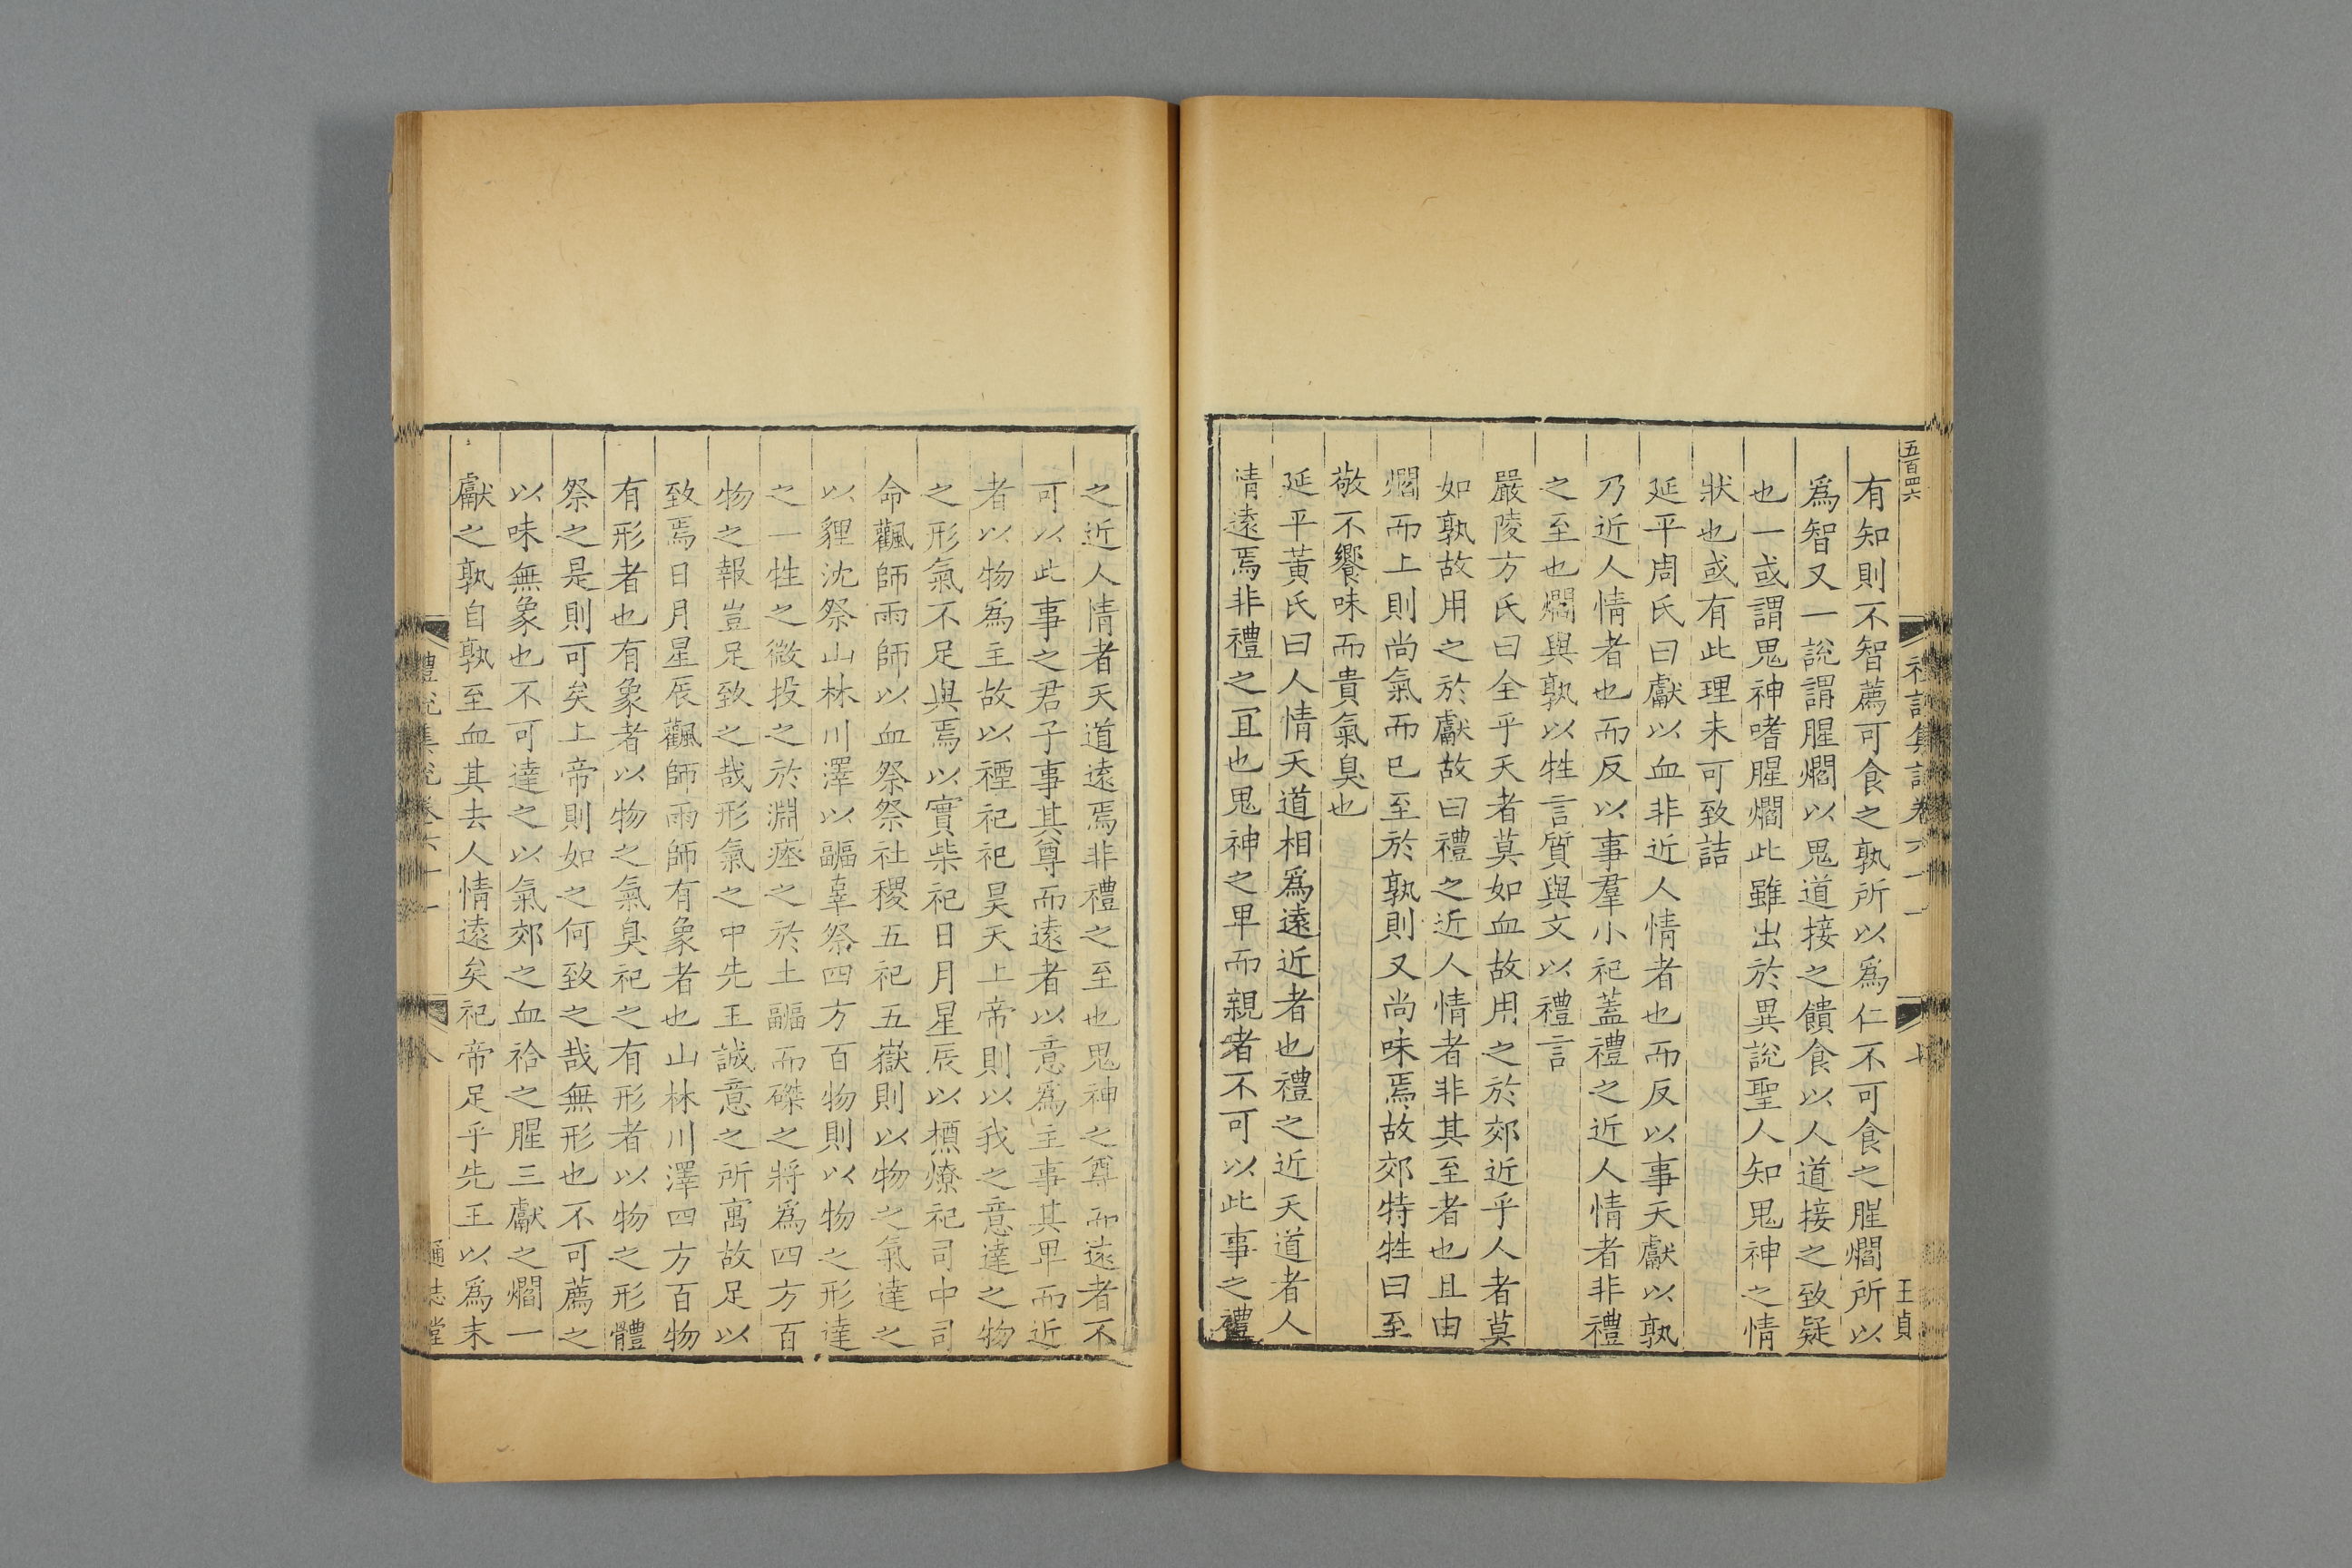 五百四六
王貞
有知則不智薦可食之孰所以爲仁不可食之腥爓所以
爲智又一說謂腥爓以鬼道接之饋食以人道接之致疑
也一或謂鬼神嗜腥爓此雖出於異說聖人知鬼神之情
狀也或有此理未可致詰
延平周氏曰獻以血非近人情者也而反以事天獻以孰
乃近人情者也而反以事羣小祀蓋禮之近人情者非禮
之至也爓與孰以牲言質與文以禮言
嚴陵方氏曰全乎天者莫如血故用之於郊近乎人者莫
如孰故用之於獻故曰禮之近人情者非其至者也且由
爓而上則尚氣而已至於孰則又尚味焉故郊特牲曰至
敬不饗味而貴氣臭也
延平黃氏曰人情天道相爲遠近者也禮之近天道者人
情遠焉非禮之宜也鬼神之卑而親者不可以此事之禮
之近人情者天道遠焉非禮之至也鬼神之尊而遠者不
可以此事之君子事其尊而遠者以意爲主事其卑而近
者以物爲主故以禋祀祀昊天上帝則以我之意達之物
之形氣不足與焉以實柴祀日月星辰以槱燎祀司中司
命飌師雨師以血祭祭社稷五祀五嶽則以物之氣達之
以貍沈祭山林川澤以疈辜祭四方百物則以物之形達
之一牲之微投之於淵瘞之於土疈而磔之將爲四方百
物之報豈足致之哉形氣之中先王誠意之所寓故足以
致焉日月星辰飌師雨師有象者也山林川澤四方百物
有形者也有象者以物之氣臭祀之有形者以物之形體
祭之是則可矣上帝則如之何致之哉無形也不可薦之
以味無象也不可達之以氣郊之血祫之腥三獻之爓一
獻之孰自孰至血其去人情遠矣祀帝足乎先王以爲未
禮記集說卷六十一
八
通志堂